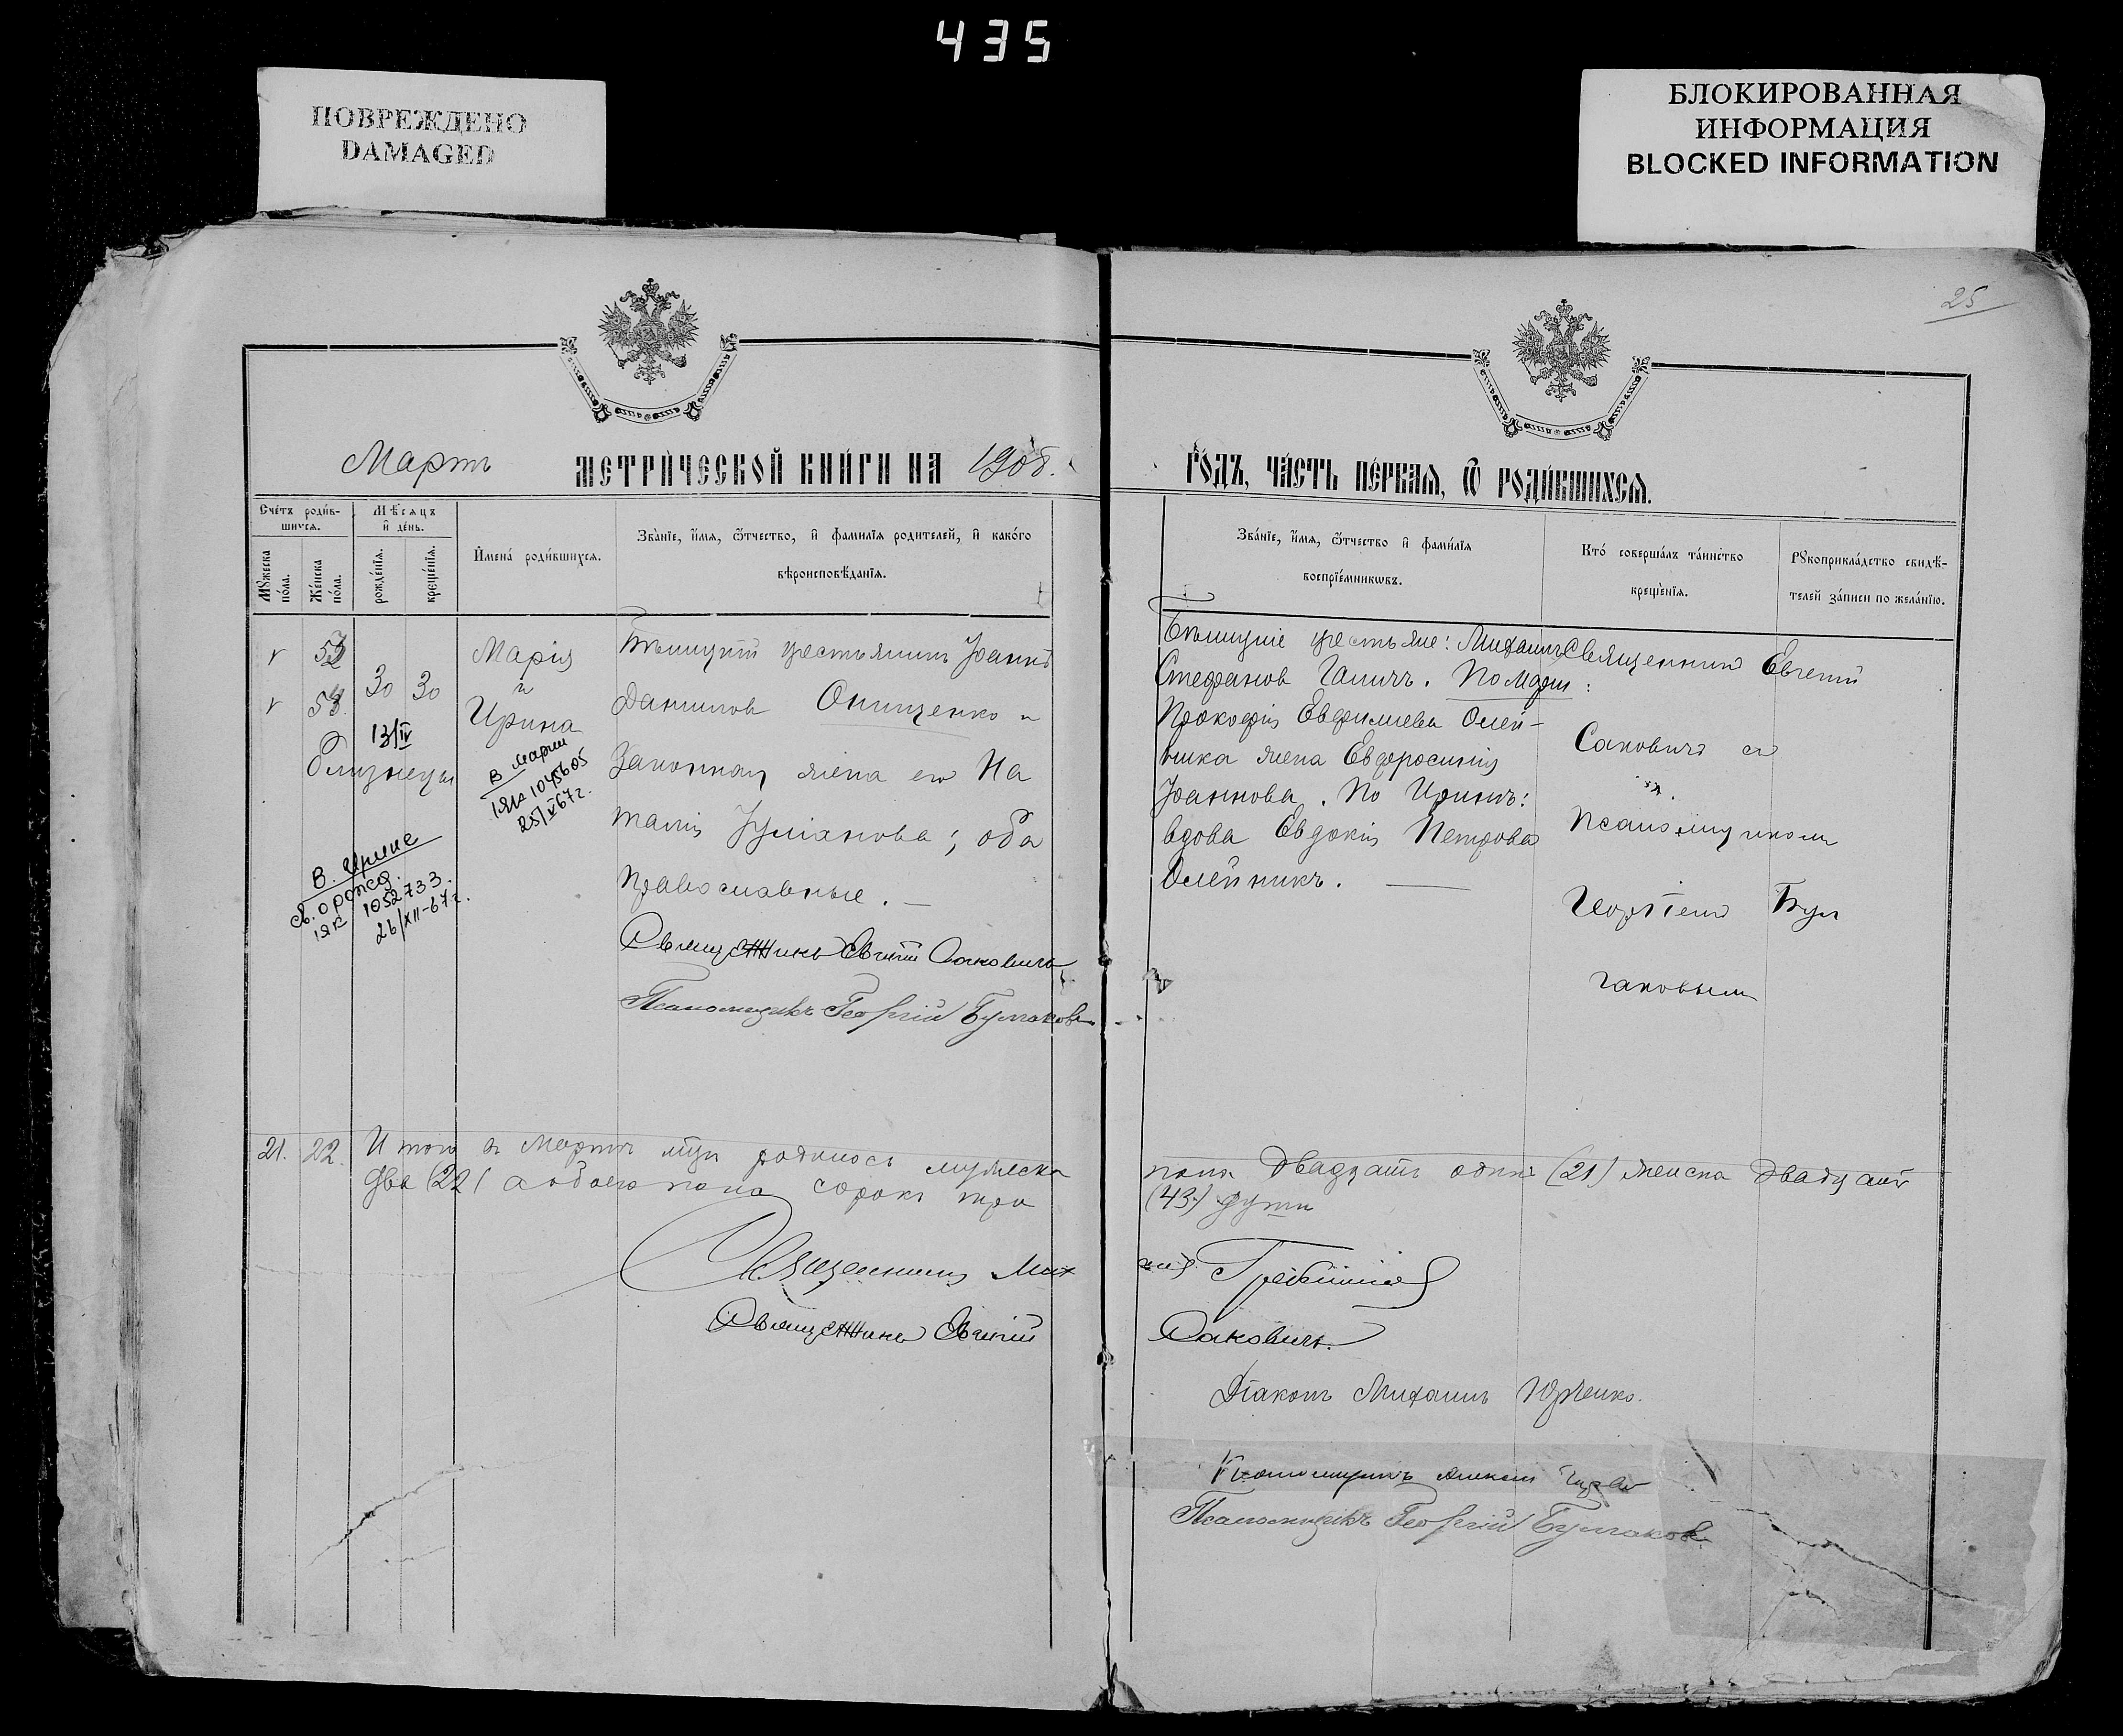 435
ПОВРЕЖДЕНО
DAMAGED
БЛОКИРОВАННАЯ
ИНФОРМАЦИЯ
BLOCKED INFORMATION
25
Мартъ
МЕТРИЧЕСКОЙ КНИГИ НА 190
ГОДЪ, ЧАСТЬ ПЕРВАЯ, Ѿ РОДИВШИХСЯ.
Счетъ родив-
шихся.
Мѣсяцъ
и день.
Мужеска
пола.
Женска
пола.
рожденїя.
крещенїя.
Имена родившихся.
Званїе, имя, ѿтчество, и фамилїя родителей, и какого
вѣроисповѣданїя.
Званїе, имя, ѿтчество и фамилїя
воспрїемниковъ.
Кто совершалъ таинство
крещенїя.
Рукоприкладство свидѣ-
телей записи по желанїю.
53
54
близнецы
30 30
13/IV
Марія
и
Ирина
В Марии
IЯК 1045605
25/V 67 г.
В. Ирине
св. о рожд.
IЯК 1052733.
26/XII-67 г.
крестьянинъ Іоаннъ
Даниловъ Онищенко и
Законная жена его На
талія Іуліанова; оба
Православные. —
Священникъ Евгеній Саковичъ
Псаломщикъ Георгій Булгаковъ
крестьяне: Михаилъ
Стефановъ Галичъ. По Маріи:
Прокофія Евфиміева Олей-
ника жена Евфросинія
Іоаннова. По Иринѣ:
вдова Евдокія Петрова
Олейникъ. —
Священникъ Евгеній
Саковичъ съ
Псаломщикомъ
Георгіемъ Бул
гаковымъ
21. 22. Итого въ Мартѣ м-цѣ родилось мужеска
пола двадцать одинъ (21) женска двадцать
два (22) а обоего пола сорокъ три
(43) души
Священникъ Мих
аилъ
Священникъ Евгеній
Саковичъ.
Діаконъ Михаилъ Юрченко.
Псаломщикъ Алексій
Псаломщикъ Георгій Булгаковъ